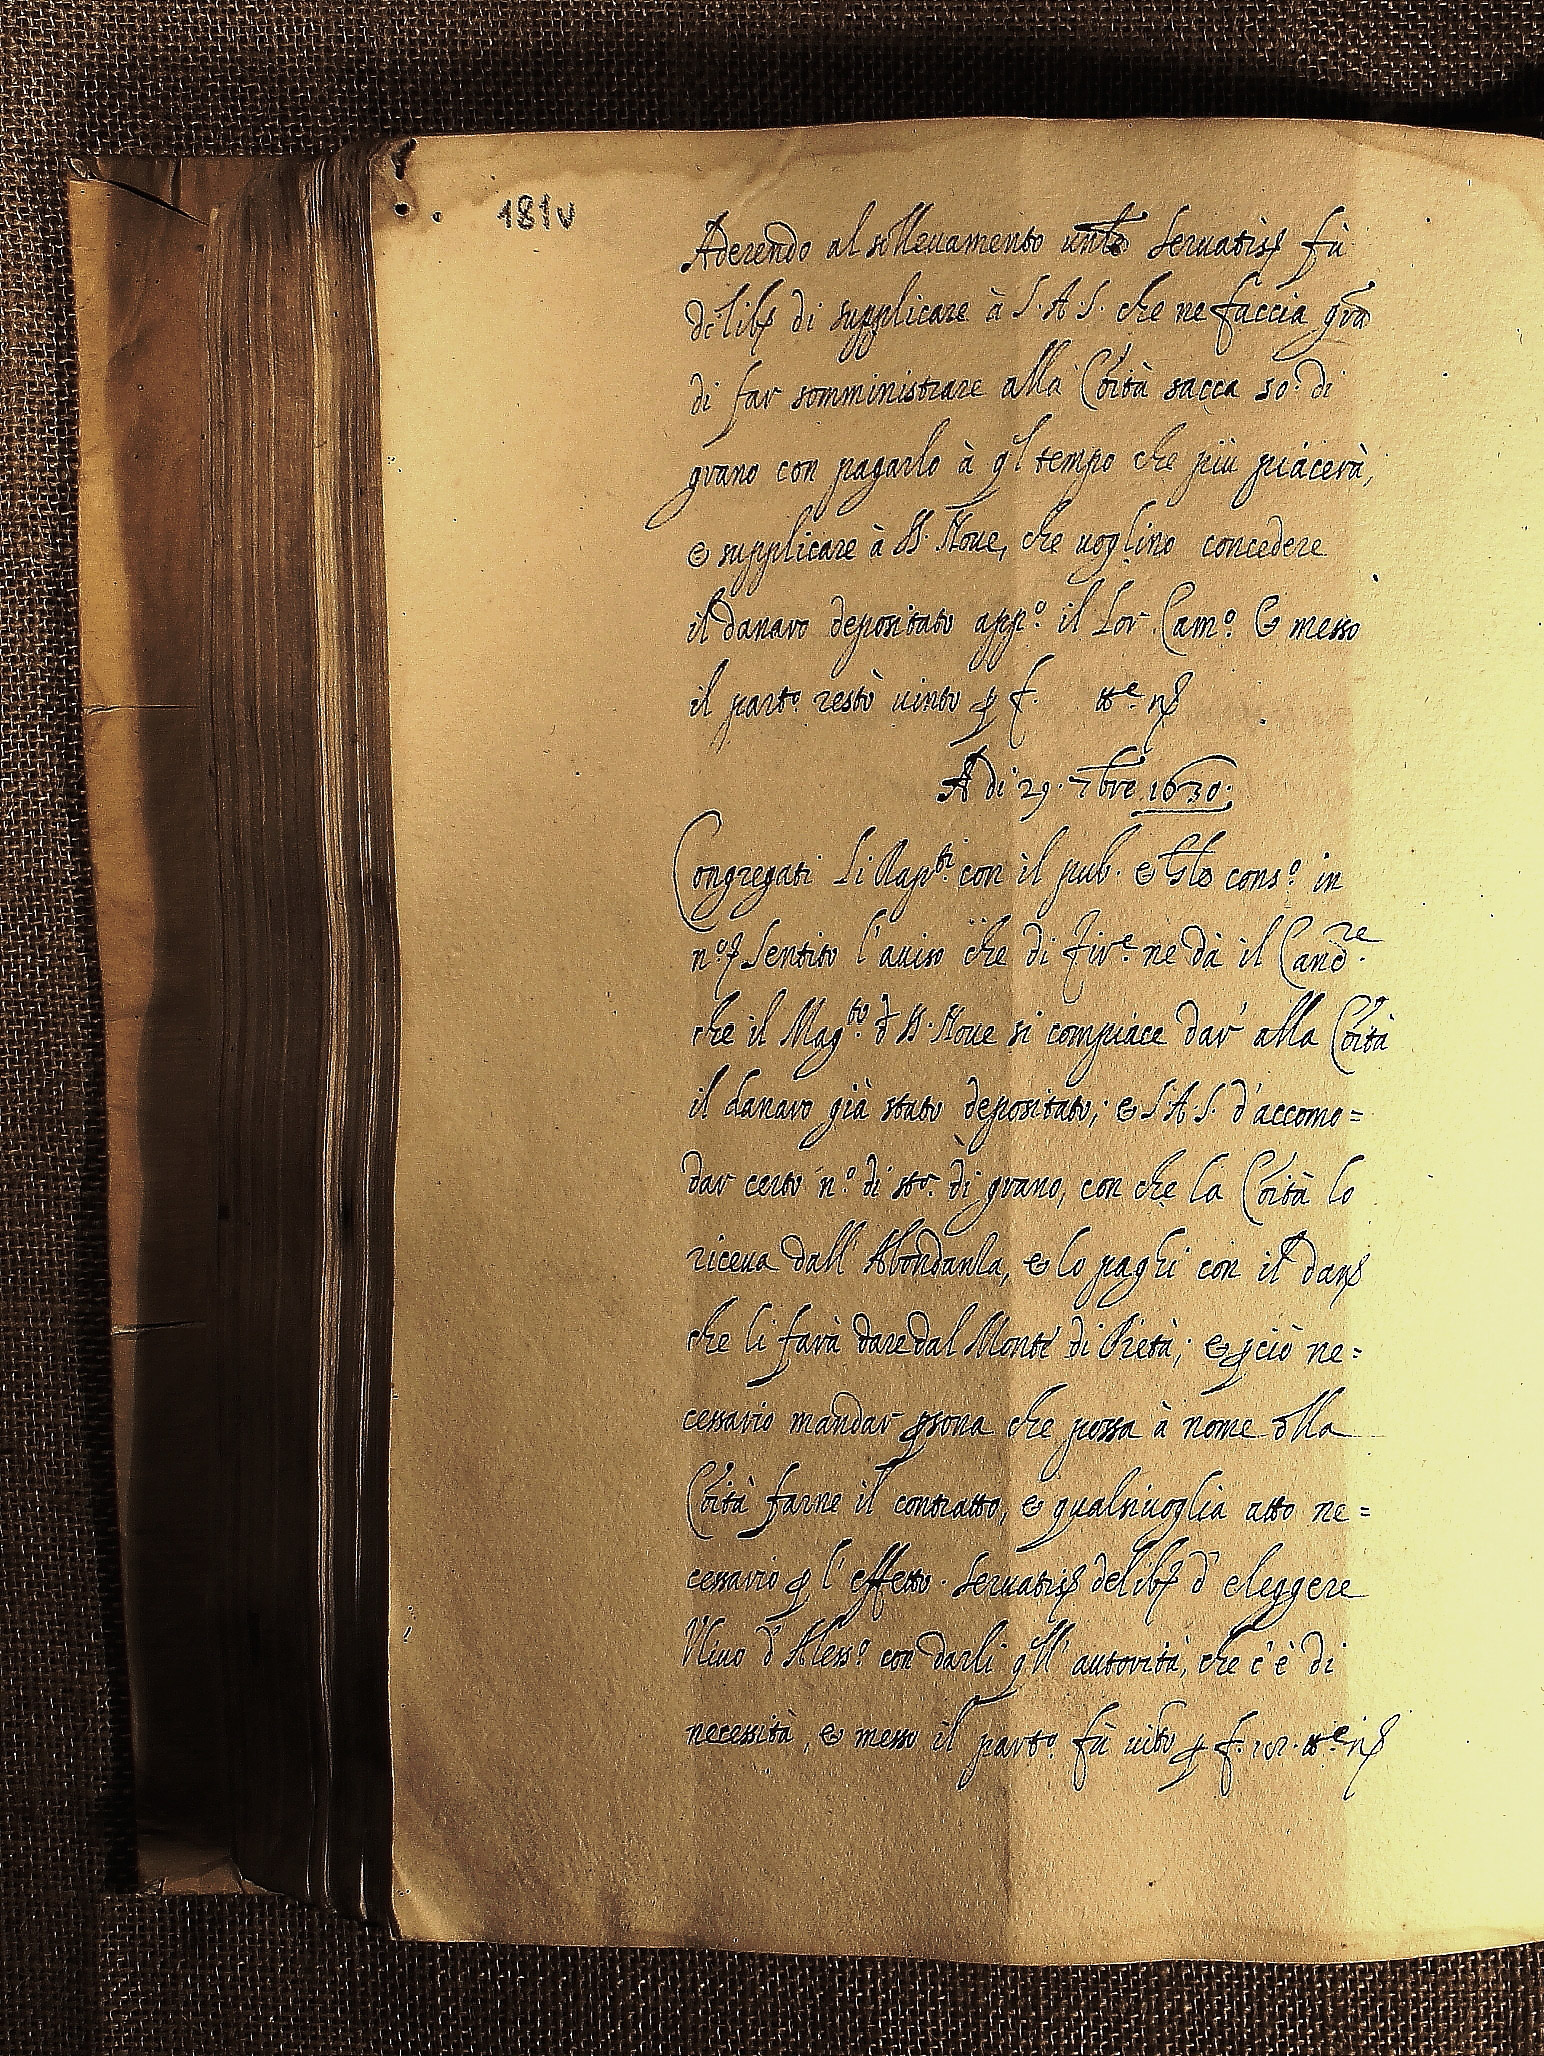 181v
Aderendo al sollevamento unlè Servatis fù
delib di supplicare à S. A. S. che ne faccia gra
di far somministrare alla Cõità sacca 50. di
grano con pagarlo à ql tempo che più piacerà,
e supplicare à SS. Nove, che voglino concedere
il danaro depositato appo il Lor. Camo. E messo
il parto restò vinto p f. nte n
Adi 29. 7bre 1630.
Congregati Li Rapti con il pub. e gnle conso. in
no Sentito l'aviso che di Fire ne dà il Cancre
che il Magto d SS. Nove si compiace dar' alla Cõità
il danaro già stato depositato; e S. A. S. d'accomo=
dar certo no. di str. di grano, con che la Cõità lo
riceva dall' Abondanza, e lo paghi con il dan
che li farà dare dal Monte di Pietà; e pciò ne=
cessario mandar psona che possa à nome dlla
Cõità farne il contratto, e qualsivoglia atto ne=
cessario p l'effetto. Servatis delib d'eleggere
Ulivo d'Aless.o con darli qll' autorità, che c'è di
necessità, e messo il parto. fù vito p f. nte n